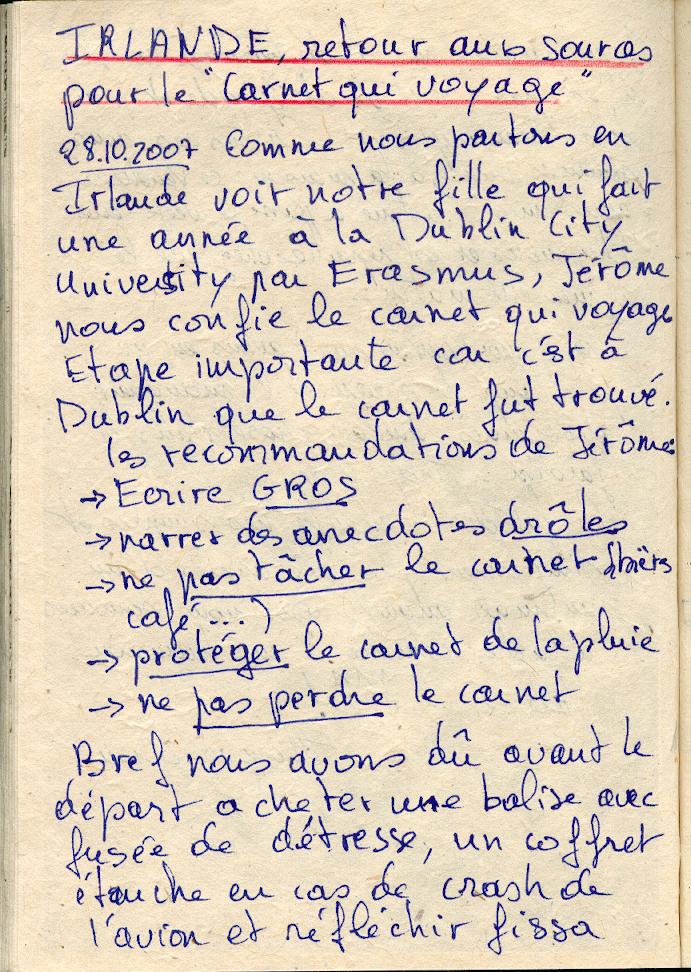 IRLANDE, retour aux sources
pour le "Carnet qui voyage"
28.10.2007 Comme nous partons en
Irlande voir notre fille qui fait
une année à la Dublin City
University par Erasmus, Jérôme
nous confie le carnet qui voyage
Etape importante car c'est à
Dublin que le carnet fut trouvé.
les recommandations de Jérôme
→ Ecrire GROS
→ narrer des anecdotes drôles
→ ne pas tâcher le carnet (bières
café...)
→ protéger le carnet de la pluie
→ ne pas perdre le carnet
Bref nous avons dû avant le
départ acheter une balise avec
fusée de détresse, un coffret
étanche en cas de crash de
l'avion et réfléchir fissa